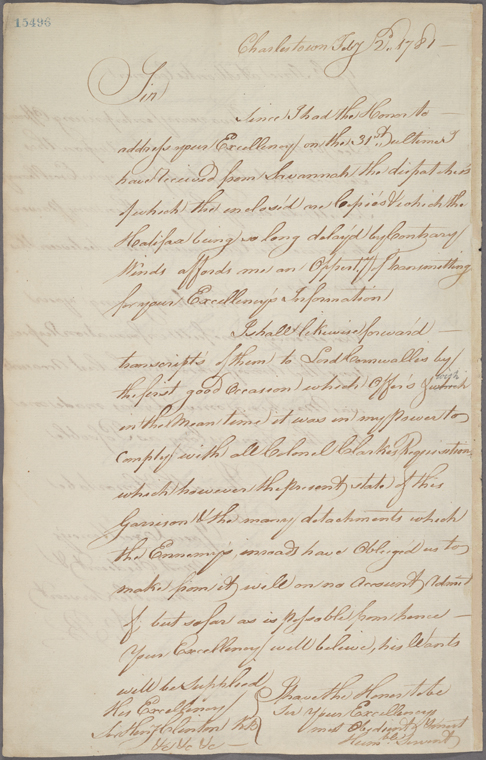 15496
Charlestown Feby 2d. 1781
Sir
Since I had the Honor to
address your Excellency on the 31st. Ultimo I
have received from Savannah the dispatches
of which the inclosed are Copies & which the
Halifax being so long delay'd by Contrary
Winds affords me an Opperty. of transmitting
for your Excellency's Information
I shall likewise forward
transcripts of them to Lord Cornwallis by
the first good Occasion which Offers & wish
in the Mean time it was in my Power to
comply with all Colonel Clarkes Requisitions
which however the Present state of this
Garrison & the many detachments which
the Ennemy's inroads have Obliged us to
make from it will on no Account Admit
of but so far as is Possible from hence
Your Excellency will believe, his Wants
will be Supplied
His Excellency
Sir Henry Clinton KB
&c &c &c
I have the Honor to be
Sir Your Excellencys
most Obedient &
Humble Servant